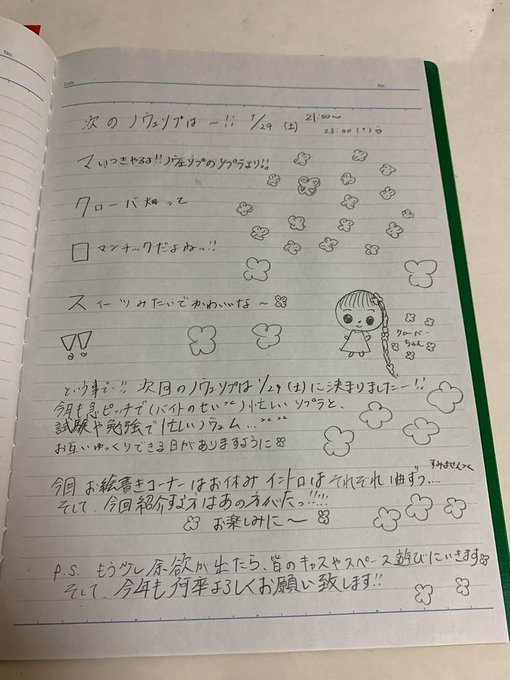 No.
Date
No.
次のノヴェリブはー!! 1/29 (土) 21:00〜
23:00 (?)
マいつきやるよ!!ノヴェリブのリブラより!!
クローバ畑って
ロマンチックだよねっ!!
スィーツみたいでかわいいな〜
!!
クローバーちゃん
という事で!! 次回のノヴェリブは1/29(土)に決まりましたー!!
今月も急ピッチで(バイトのせい)忙しいリブラと、
試験や勉強で忙しいノヴェム...
お互いゆっくりできる日がありますように
今回お絵書きコーナーはお休み イントロはそれぞれ1曲ずつ....
すみませんっ
そして、今回紹介する方はあの方がたっ!!!!
お楽しみに〜
P.S. もう少し余欲が出たら、皆のキャスやスペース遊びにいきます
そして、今年も何卒よろしくお願い致します!!